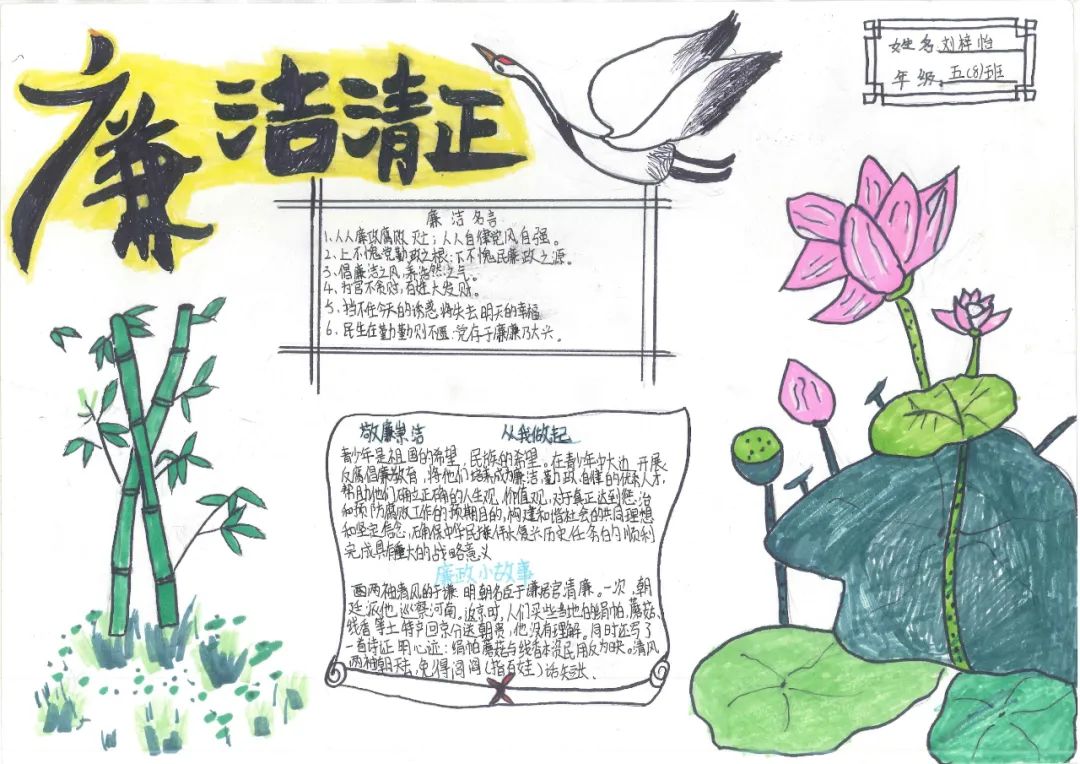 廉洁清正
姓名 刘梓怡
年级 五(8)班
廉洁名言
1、人人廉政腐败灭;人人自律党风自强。
2、上不愧党勤政之根;下不愧民廉政之源。
3、倡廉洁之风,养浩然之气。
4、为官不贪财,百姓大发财。
5、挡不住今天的诱惑,将失去明天的幸福
6、民生在勤勤则不匮:党存于廉廉乃大兴。
敬廉崇洁 从我做起
青少年是祖国的希望,民族的希望。在青少年中大力开展
反腐倡廉教育,将他们培养成为廉洁,勤政自律的优秀人才,
帮助他们确立正确的人生观,价值观,对于真正达到惩治
和预防腐败工作的预期目的,构建和谐社会的共同理想
和坚定信念,确保中华民族伟大复兴历史任务的顺利
完成具有重大的战略意义
廉政小故事
两袖清风的于谦:明朝名臣于谦居官清廉。一次,朝
廷派他巡察河南。返京时,人们买些当地的绢帕,蘑菇,
线香等土特产回京分送朝贵,他没有理解。同时还写了
一首诗证明心迹:绢帕蘑菇与线香本资民用反为殃。清风
两袖朝天去,免得闾阎(指百姓)话短长。